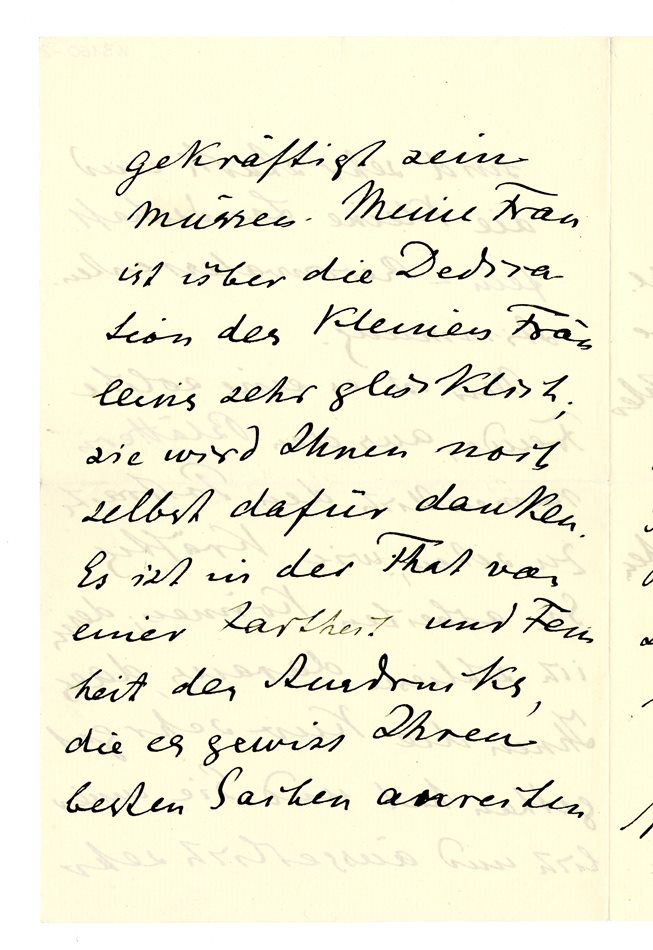 gekräftigt sein
müssen. Meine Frau
ist über die Dedica-
tion des kleinen Fräu
leins sehr glücklich,
sie wird Ihnen noch
selbst dafür danken.
Es ist in der That von
einer Zartheit und Fein
heit des Ausdrucks,
die es gewiss Ihren
besten Sachen anreihen